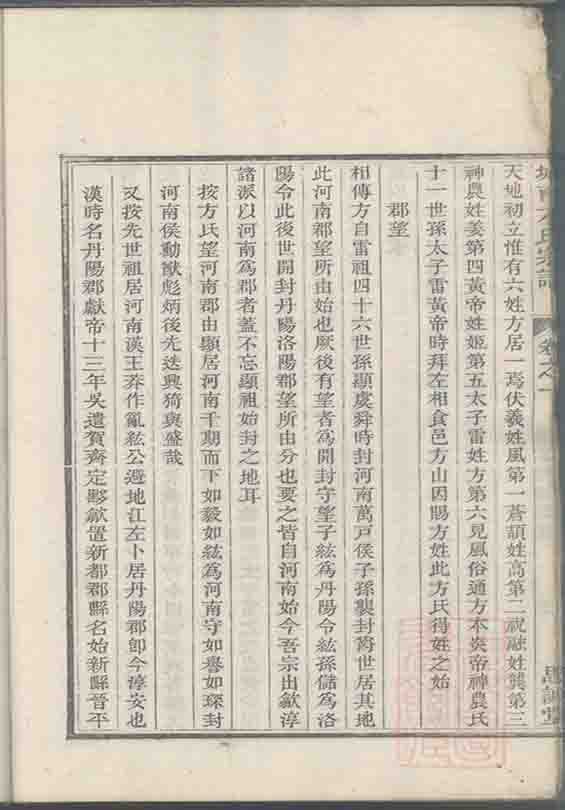 方氏宗譜
卷之一
天地初立惟有六姓方居一焉伏羲姓風第一蒼頡姓高第二祝融姓龔第三
神農姓姜第四黃帝姓姬第五太子雷姓方第六見風俗通方本炎帝神農氏
十一世孫太子雷黃帝時拜左相食邑方山因賜方姓此方氏得姓之始
郡望
相傳方自雷祖四十六世孫顯虞舜時封河南萬戸侯子孫襲封奝世居其地
此河南郡望所由始也厥後有望者為開封守望子紘為丹陽令紘孫儲為洛
陽令此後世開封丹陽洛陽郡望所由分也要之皆自河南始今吾宗出歙淳
諸派以河南為郡者蓋不忘顯祖始封之地耳
按方氏望河南郡由顯居河南千期而下如毅如紘為河南守如譽如琛封
河南侯勳猷彪炳後先迭興猗與盛哉
又按先世祖居河南漢王莽作亂紘公避地江左卜居丹陽郡卽今淳安也
漢時名丹陽郡獻帝十三年吳遣賀齊定黟歙置新都郡縣名始新縣晉平